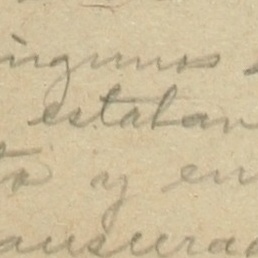 ingunos
estaban
to y en
ausurad